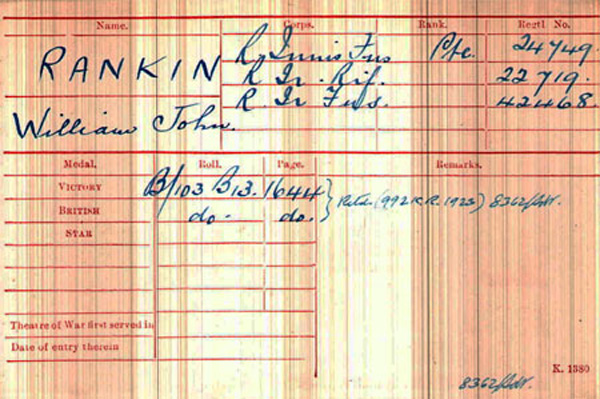 Name. Corps. Rank. Regtl. No.
RANKIN R. Innis Fus Pte. 24749.
R Ir. Rif. 22719.
William John. R. Ir Fus. 42468.
Medal. Roll. Page. Remarks.
VICTORY B/103 B13. 1644
BRITISH do. do. } Retd. (992 K.R. 1923) 8362/Adt.
STAR
Theatre of War first served in
Date of entry therein
K. 1380
8362/Adt.